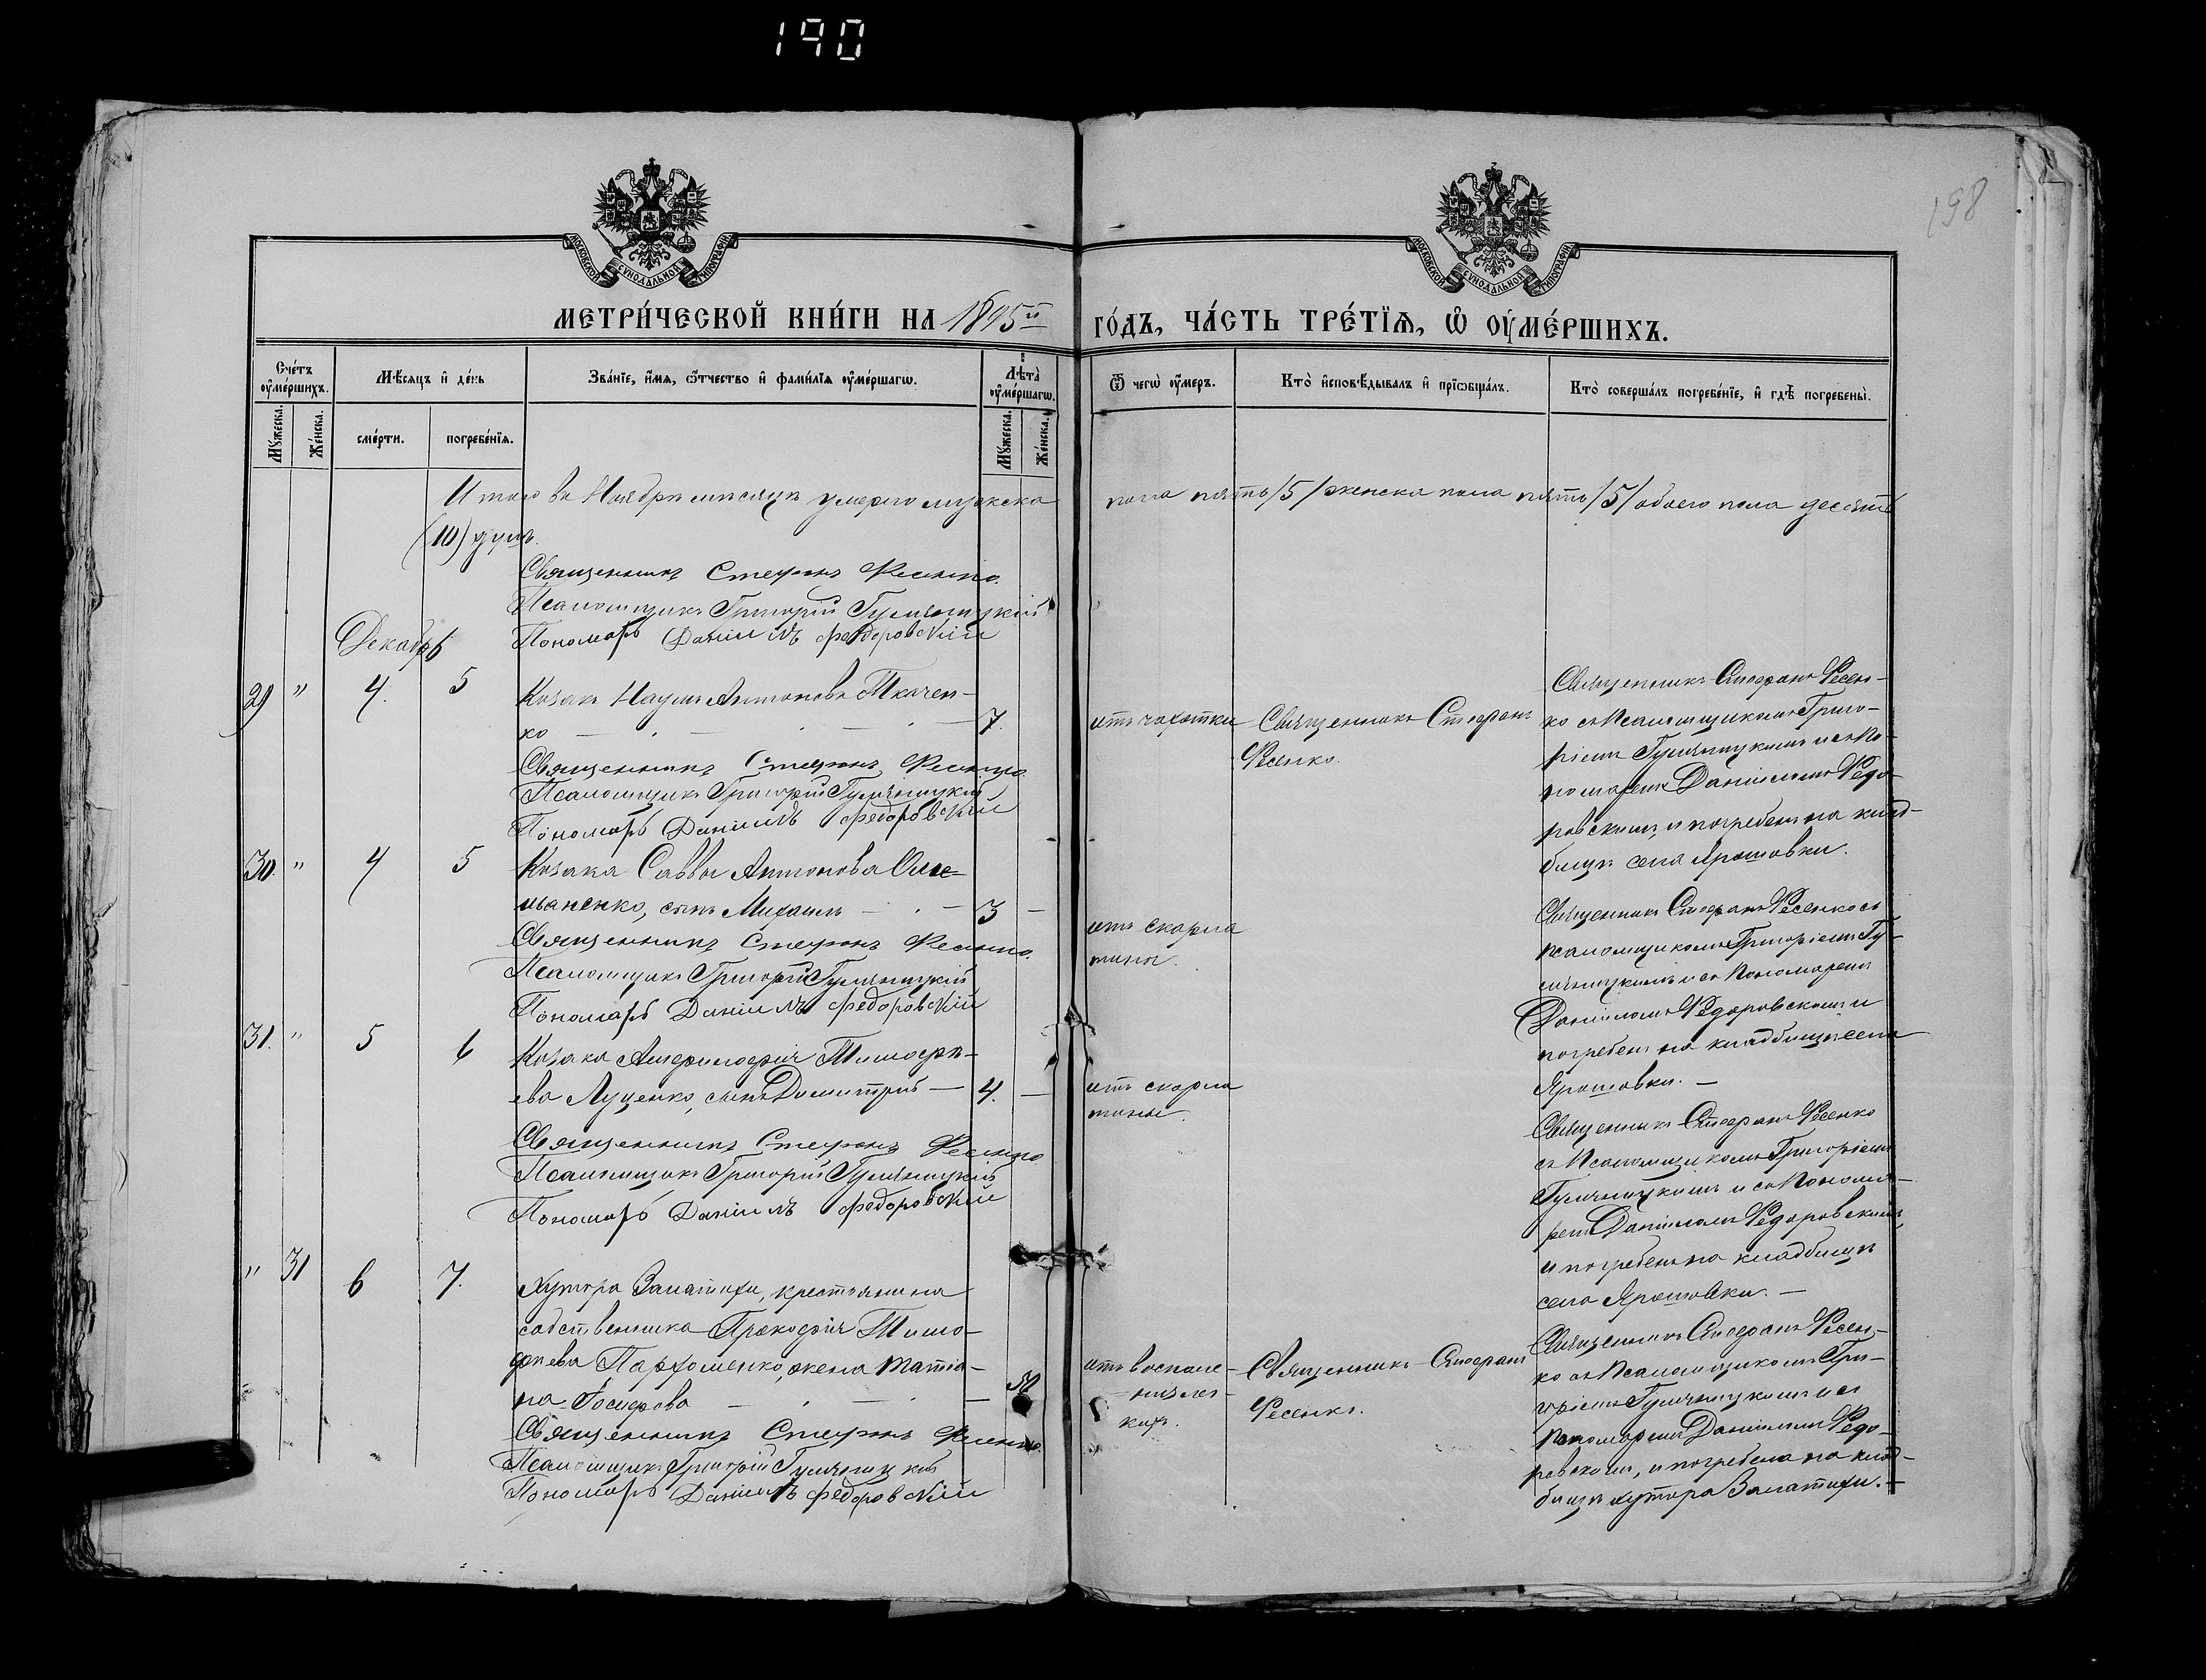 190
198
МОСКОВСКОЙ СѴНОДАЛЬНОЙ ТИПОГРАФІИ
МОСКОВСКОЙ СѴНОДАЛЬНОЙ ТИПОГРАФІИ
МЕТРИ́ЧЕСКОЙ КНИ́ГИ НА 1895й ГО́ДЪ, ЧА́СТЬ ТРЕ́ТЇѦ, Ѽ ОУ҆МЕ́РШИХЪ.
Сче́тъ оу҆ме́ршихъ.
Мꙋ́жеска.
Же́нска.
Мѣ́сѧцъ и҆ де́нь
сме́рти.
погребе́нїѧ.
Зва́нїе, и҆́мѧ, ѻ҆́тчество и҆ фами́лїѧ оу҆ме́ршагѡ.
Лѣ́та оу҆ме́ршагѡ.
Мꙋ́жеска.
Же́нска.
Ѿ чегѡ̀ оу҆́меръ.
Кто̀ и҆сповѣ́дывалъ и҆ прїѡбща́лъ.
Кто̀ соверша́лъ погребе́нїе, и҆ гдѣ̀ погребены̀.
Итого въ Ноябрѣ мѣсяцѣ умерло мужска пола пять /5/ женска пола пять /5/ обоего пола десять
(10) душъ.
Священникъ Стефанъ Фесенко.
Псаломщикъ Григорій Гумяницкій
Пономарь Даніилъ Федоровскій
Декабрь
29 " 4. 5
Козакъ Наумъ Антоновъ Ткачен-
ко — 7.
отъ чахотки
Священникъ Стефанъ
Фесенко.
Священникъ Стефанъ Фесен-
ко съ Псаломщикомъ Григо-
ріемъ Гумяницкимъ и съ По-
номаремъ Даніиломъ Федо-
ровскимъ, и погребенъ на клад-
бищѣ села Ярошовки.
Священникъ Стефанъ Фесенко
Псаломщикъ Григорій Гумяницкій
Пономарь Даніилъ Федоровскій
30. " 4 5
Козака Саввы Антонова Оме-
льяненко, сынъ Михаилъ — 3 —
отъ скарла
тины.
Священникъ Стефанъ Фесенко съ
Псаломщикомъ Григоріемъ Гу-
мяницкимъ и съ Пономаремъ
Даніиломъ Федоровскимъ и
погребенъ на кладбищѣ села
Ярошовки. —
Священникъ Стефанъ Фесенко.
Псаломщикъ Григорій Гумяницкій
Пономарь Даніилъ Федоровскій
31. " 5 6
Козака Тимофѣ-
ева Луценко, сынъ Димитрій — 4. —
отъ скарла
тины.
Священникъ Стефанъ Фесенко
съ Псаломщикомъ Григоріемъ
Гумяницкимъ и съ Понома-
ремъ Даніиломъ Федоровскимъ,
и погребенъ на кладбищѣ
села Ярошовки. —
Священникъ Стефанъ Фесенко
Псаломщикъ Григорій Гумяницкій
Пономарь Даніилъ Федоровскій
" 31 6 7.
Хутора Залатихи, крестьянина
собственника Прокофія Тимо-
фѣева Пархоменко, жена Татіа-
на —
отъ воспале-
нія лег-
кихъ.
Священникъ Стефанъ
Фесенко.
Священникъ Стефанъ Фесен-
ко съ Псаломщикомъ Гри-
горіемъ Гумяницкимъ и съ
Пономаремъ Даніиломъ Федо-
ровскимъ, и погребена на клад-
бищѣ хутора Залатихи. —
Священникъ Стефанъ Фесенко.
Псаломщикъ Григорій Гумяницкій
Пономарь Даніилъ Федоровскій